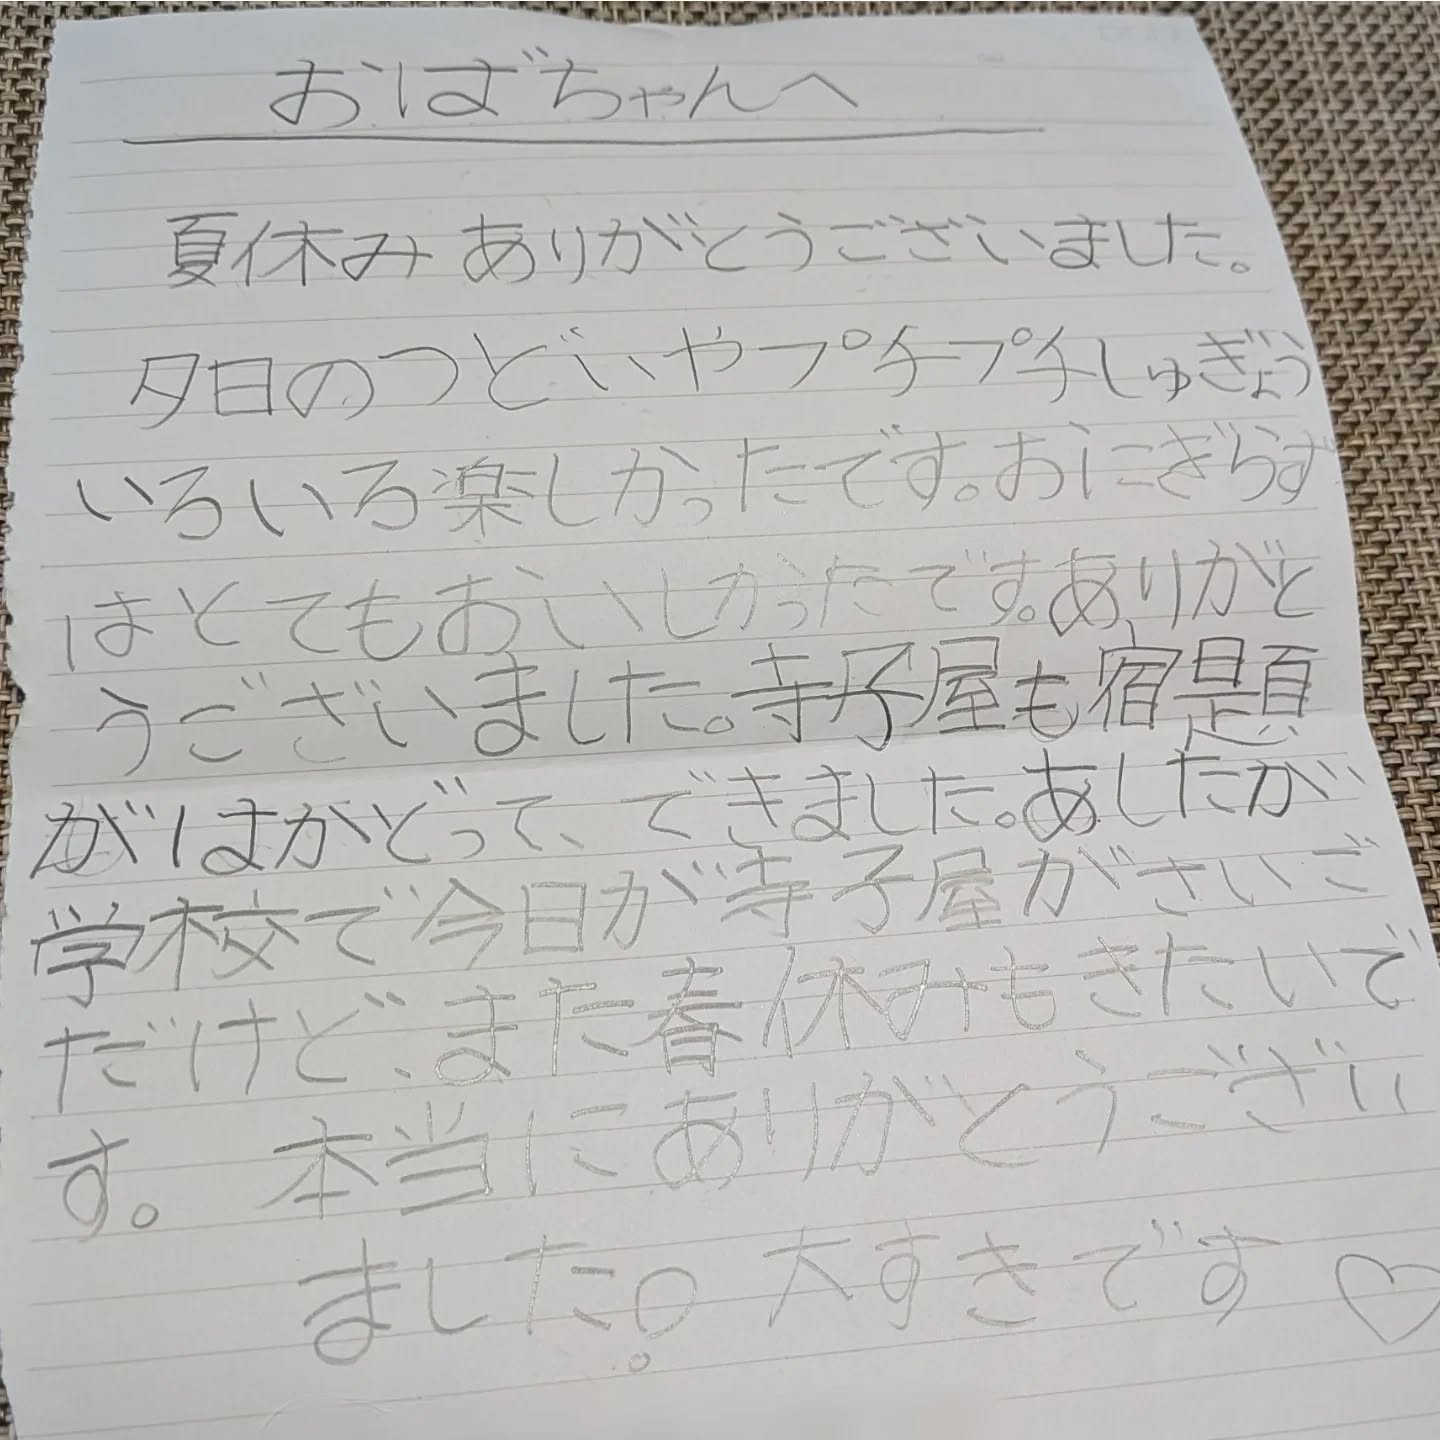 おばちゃんへ
夏休みありがとうございました。
夕日のつどいやプチプチしゅぎょう
いろいろ楽しかったです。おにぎらず
はとてもおいしかったです。ありがと
うございました。寺子屋も宿題
がはかどって、できました。あしたが
学校で今日が寺子屋がさいご
だけど、また春休みもきたいで
す。本当にありがとうござい
ました。大すきです♡